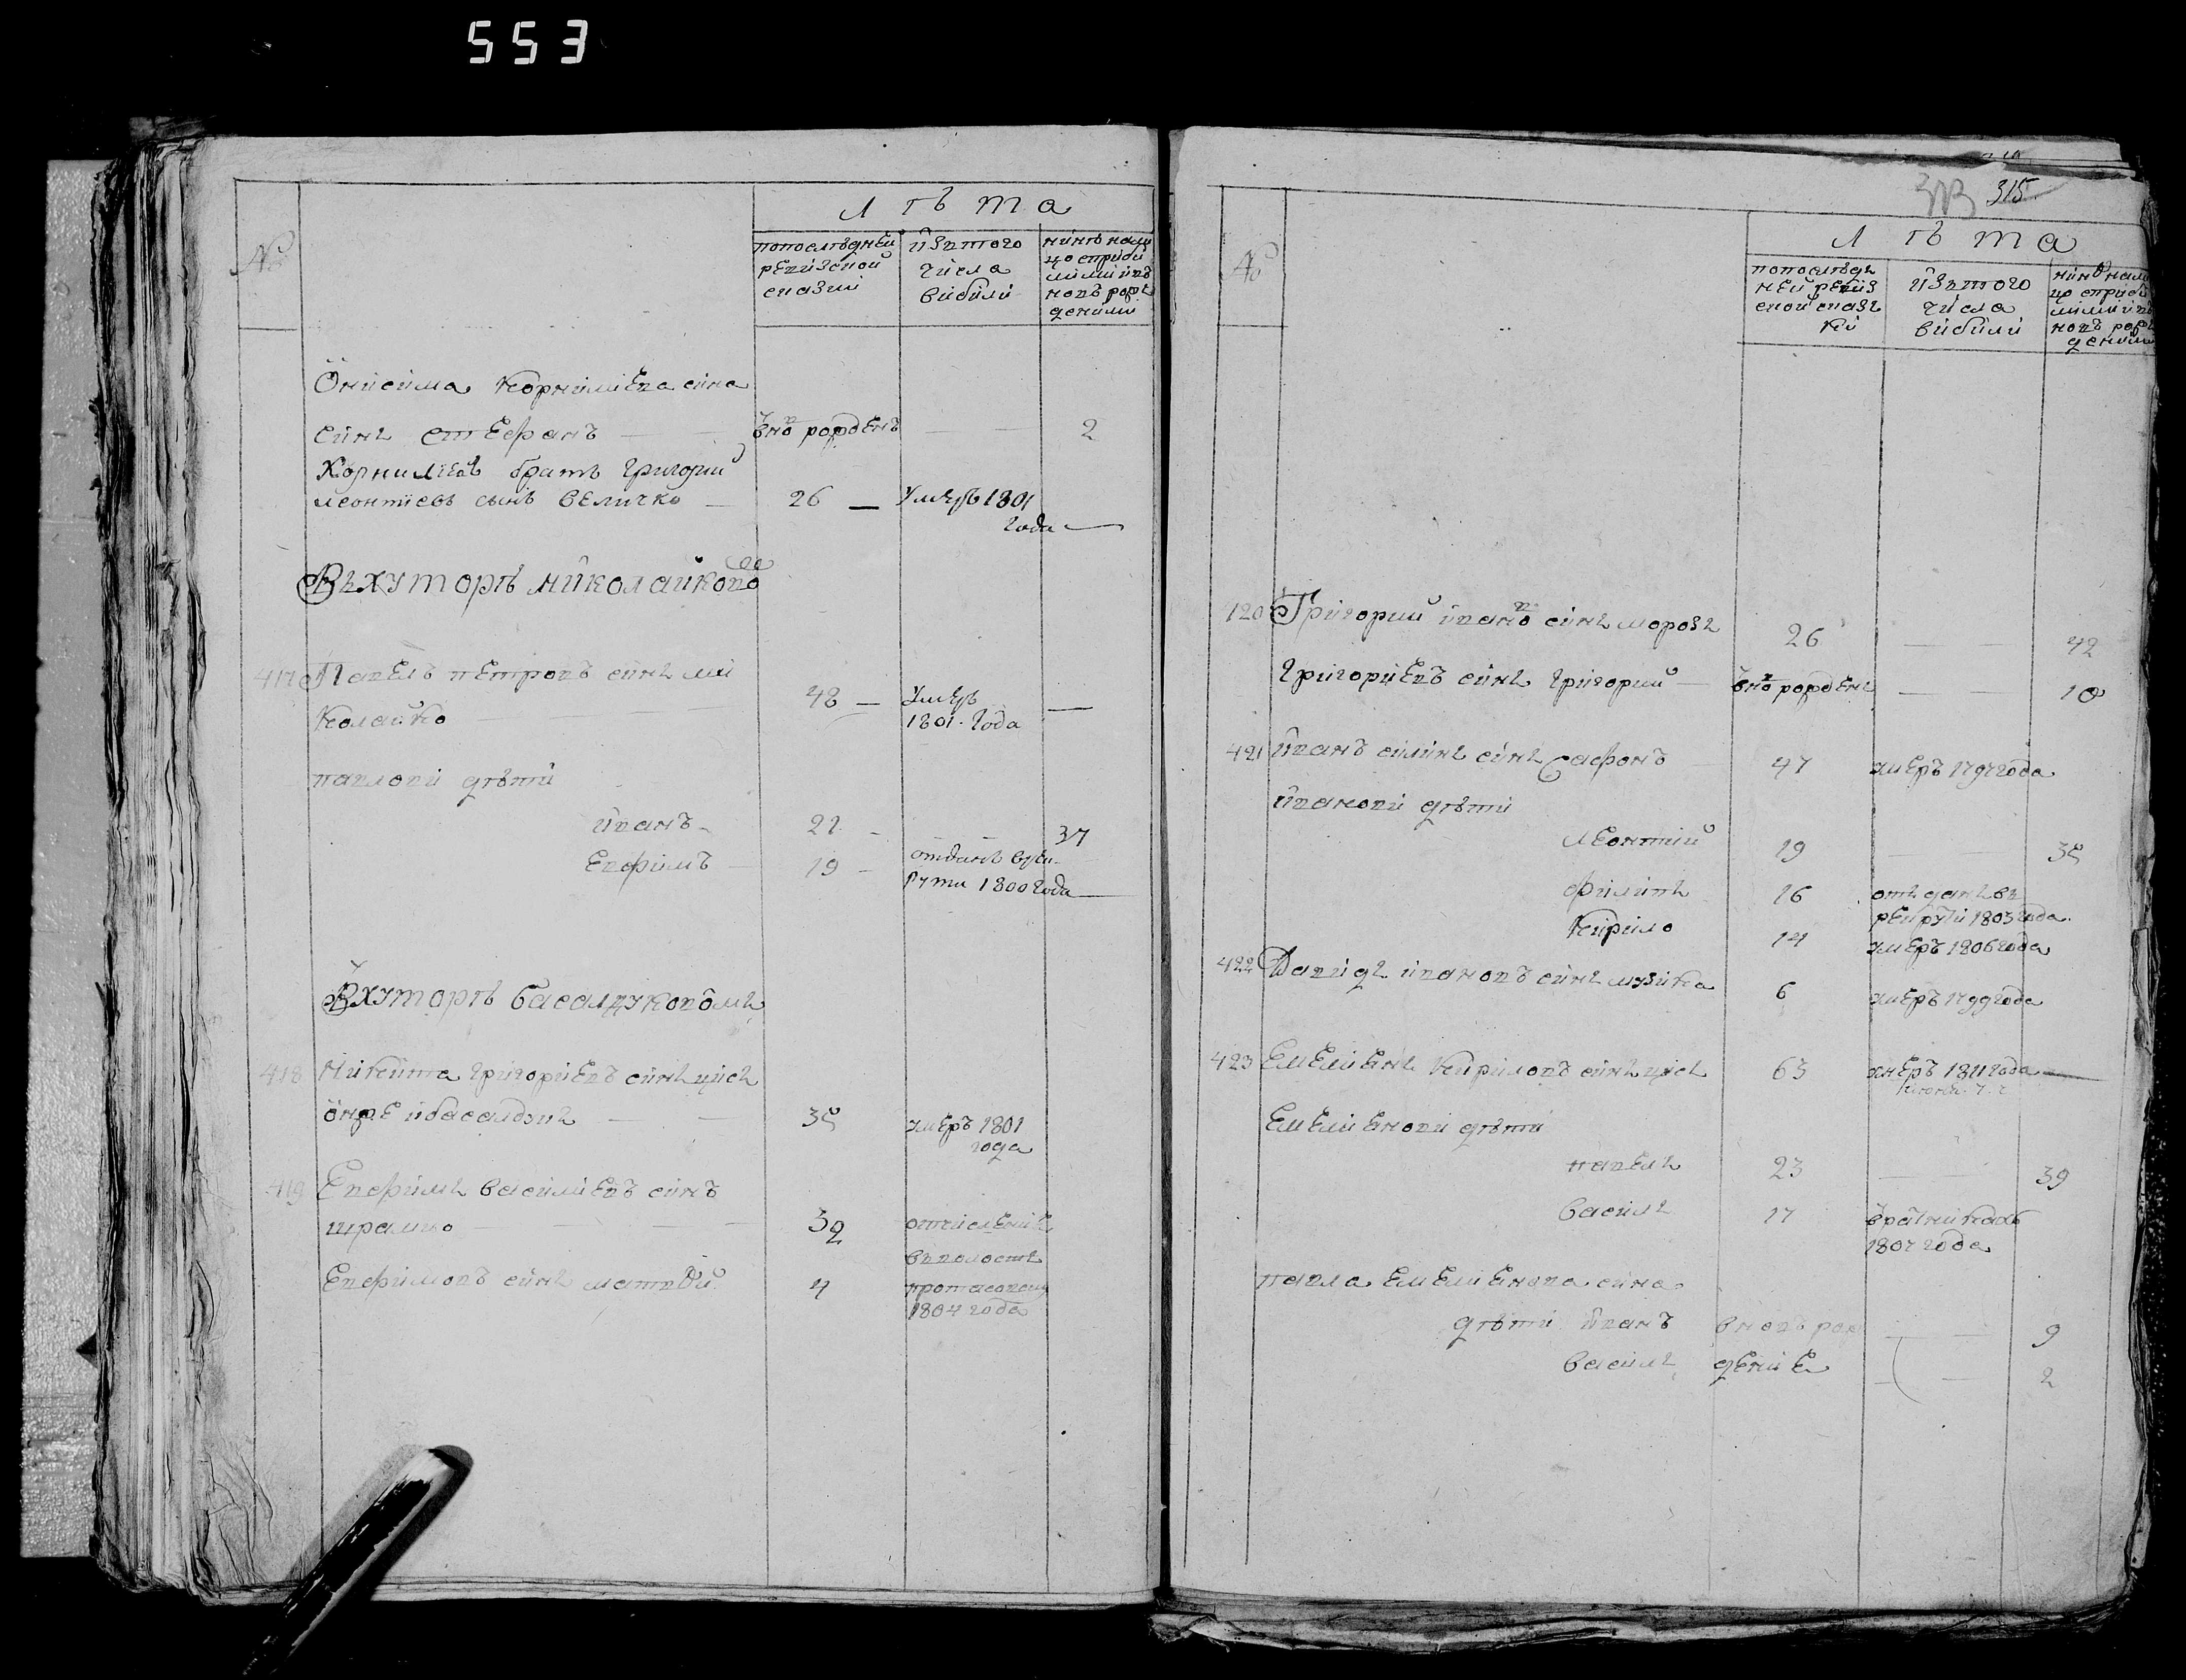 553
№
Лѣта
попослѣдней
ревизской
сказки
изтого
числа
вибили
нинѣ нали
цо спріби
лими ивъ
новъ рож
деними
Онисима Корниліева сина
синъ Стефанъ внов рожденъ 2
Корниліевъ братъ Григорий
Леонтиевъ сынъ Величко 26 Умеръ 1801
года
Въ хуторѣ Николайково
417 Павелъ Петровъ синъ Ми
колайко 48 Умеръ
1801. года
Павлови дѣти
Иванъ 22 37
Евфимъ 19 отданъ врек
руты 1800 года
В хуторѣ Басалдуковомъ
418 Никита Григориевъ синъ
Басалдукъ 35 умеръ 1801
года
419 Евфимъ Василиевъ синъ
Шрамко 32
въ волость
Евфимовъ синъ Матвѣй 4
1804 года
315
№
Лѣта
попослѣдъ
ней ревиз
ской сказъ
ки
изтого
числа
вибили
нинѣ нали
цо спріби
лими ивъ
новъ рож
деними
420 Григорий Иванов синъ Морозъ 26 42
Григориевъ синъ Григорий внов рожденъ 10
421 Иванъ Силинъ синъ Сафонъ 47 умеръ 1797 года
Иванови дѣти
Леонтий 19 35
Филипъ 16 отъданъ въ
рекрути 1805 года
Кирило 14 умеръ 1806 года
422 Давидъ Ивановъ синъ Музика 6 умеръ 1799 года
423 Емелиянъ Кириловъ синъ 63 умеръ 1811 года
Емелиянови дѣти
Павелъ 23 39
Василь 17 вратникахъ
1807 года
Павла Емелиянова сина
дѣти Иванъ вновъ рож 9
Василь дение 2